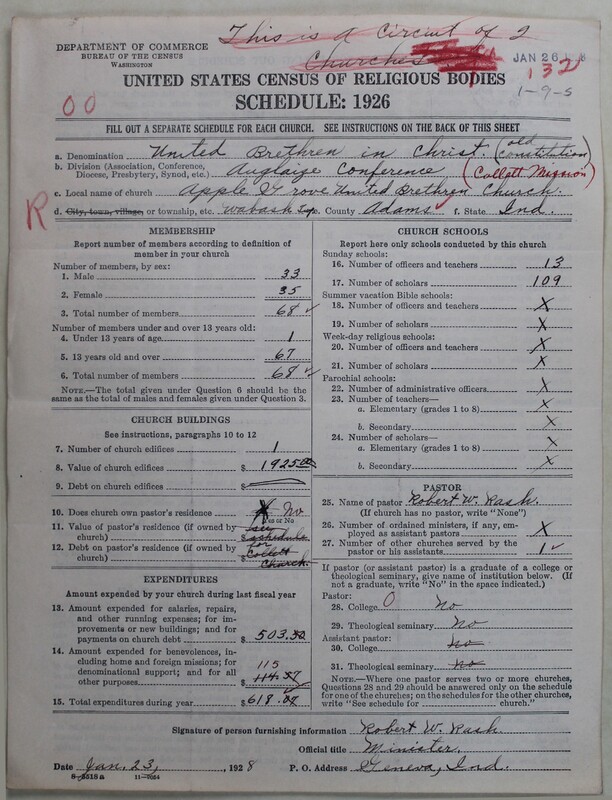 This is a Circuit of 2
Churches
DEPARTMENT OF COMMERCE
BUREAU OF THE CENSUS
WASHINGTON
JAN 26
132
1-9-5
UNITED STATES CENSUS OF RELIGIOUS BODIES
SCHEDULE: 1926
00
FILL OUT A SEPARATE SCHEDULE FOR EACH CHURCH. SEE INSTRUCTIONS ON THE BACK OF THIS SHEET
a. Denomination United Brethren in Christ. (old constitution)
b. Division (Association, Conference, Diocese, Presbytery, Synod, etc.) Auglaize Conference (Collett Mission)
c. Local name of church Apple Grove United Brethren Church.
R
d. City, town, village, or township, etc. Wabash Twp. County Adams f. State Ind.
MEMBERSHIP
Report number of members according to definition of
member in your church
Number of members, by sex:
1. Male 33
2. Female 35
3. Total number of members 68
Number of members under and over 13 years old:
4. Under 13 years of age 1
5. 13 years old and over 67
6. Total number of members 68
NOTE.—The total given under Question 6 should be
the same as the total of males and females given under Question 3.
CHURCH BUILDINGS
See instructions, paragraphs 10 to 12
7. Number of church edifices 1
8. Value of church edifices $ 1925.00
9. Debt on church edifices $
10. Does church own pastor's residence? X No
Yes or No
11. Value of pastor's residence (if owned by
church) $ See schedule
12. Debt on pastor's residence (if owned by
church) $ for Collett Church.
EXPENDITURES
Amount expended by your church during last fiscal year
13. Amount expended for salaries, repairs,
and other running expenses; for im-
provements or new buildings; and for
payments on church debt $ 503.50
14. Amount expended for benevolences, in-
cluding home and foreign missions; for
denominational support; and for all
other purposes $ 114.57
115
15. Total expenditures during year $ 618.07
CHURCH SCHOOLS
Report here only schools conducted by this church
Sunday schools:
16. Number of officers and teachers 13
17. Number of scholars 109
Summer vacation Bible schools:
18. Number of officers and teachers X
19. Number of scholars X
Week-day religious schools:
20. Number of officers and teachers X
21. Number of scholars X
Parochial schools:
22. Number of administrative officers X
23. Number of teachers—
a. Elementary (grades 1 to 8) X
b. Secondary X
24. Number of scholars—
a. Elementary (grades 1 to 8) X
b. Secondary X
PASTOR
25. Name of pastor Robert W. Rash.
(If church has no pastor, write "None")
26. Number of ordained ministers, if any, em-
ployed as assistant pastors X
27. Number of other churches served by the
pastor or his assistants 1
If pastor (or assistant pastor) is a graduate of a college or
theological seminary, give name of institution below. (If
not a graduate, write "No" in the space indicated.)
Pastor:
28. College 0 No
29. Theological seminary No
Assistant pastor:
30. College No
31. Theological seminary No
NOTE.—Where one pastor serves two or more churches,
Questions 28 and 29 should be answered only on the schedule
for one of the churches; on the schedules for the other churches,
write "See schedule for church."
Signature of person furnishing information Robert W. Rash
Official title Minister.
Date Jan. 23, 1928 P. O. Address Geneva, Ind.
8-5518a 11-9084